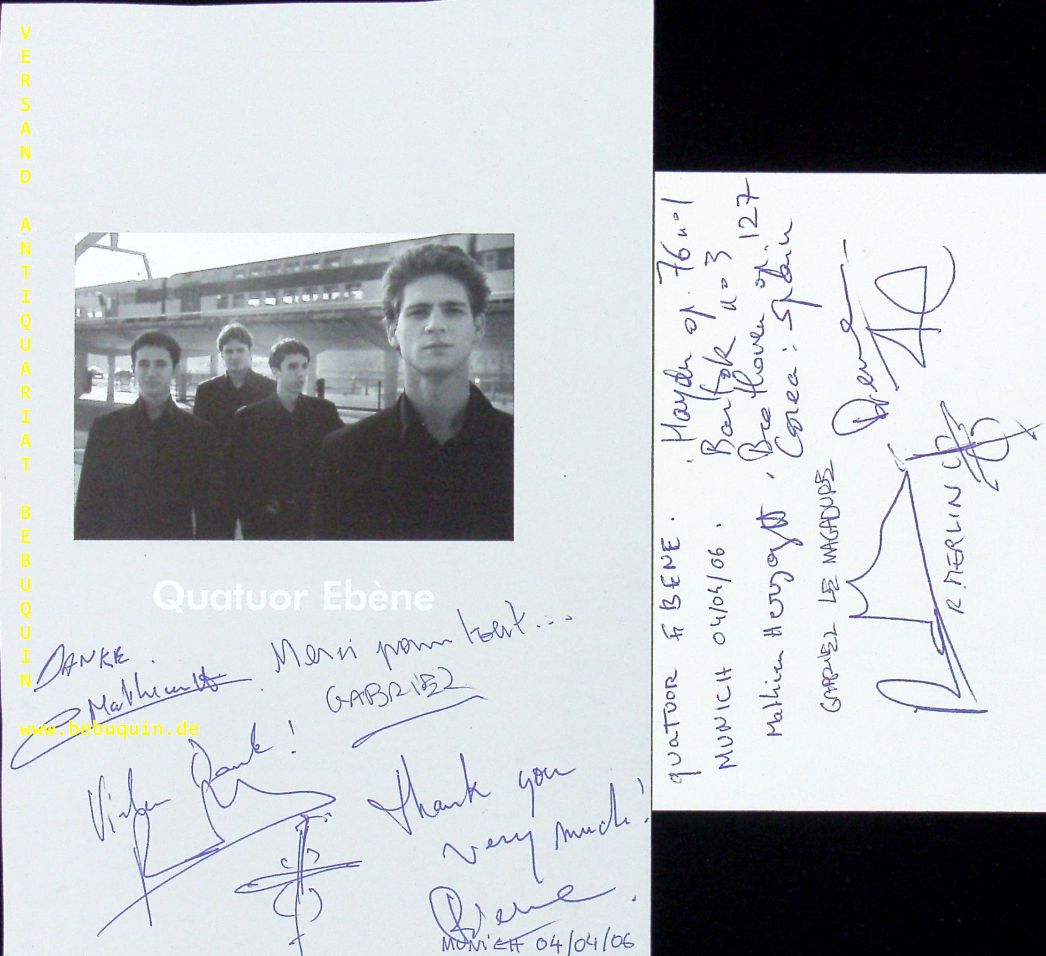 VERSAND ANTIQUARIAT BEBUQUIN
www.bebuquin.de
Quatuor Ebène
DANKE.
Mathieu H
Merci pour tout...
GABRIEL
Vielen Dank!
Thank you
very much!
Pierre.
MUNICH 04/04/06
QUATUOR EBENE.
MUNICH 04/04/06.
. Haydn op. 76 no 1
Bartok no 3
. Beethoven op. 127
Corea: Spain
Mathieu Herzog
GABRIEL LE MAGADURE
Pierre
R. MERLIN